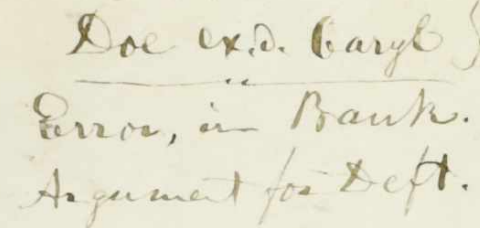 Doe ex.d. Caryl }
Error, in Bank.
Argument for Deft.